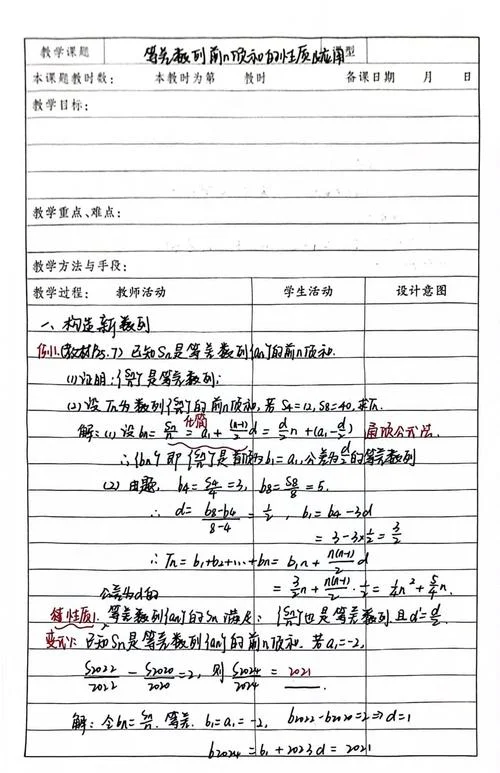 教学课题 等差数列前n项和的性质及应用 课型
本课题教时数: 本教时为第 教时 备课日期 月 日
教学目标:
教学重点、难点:
教学方法与手段:
教学过程: 教师活动 学生活动 设计意图
一、构造新数列
例1.(教材P25.7) 已知Sn是等差数列{an}的前n项和.
(1)证明:{Sn/n}是等差数列;
(2)设Tn为数列{Sn/n}的前n项和,若S4=12,S8=40,求Tn.
化简
解:(1)设bn=Sn/n=a1+(n-1)/2 d=d/2 n+(a1-d/2) 通项公式法.
∴{bn}即{Sn/n}是首项为b1=a1,公差为d/2的等差数列
(2)由题, b4=S4/4=3, b8=S8/8=5.
∴ d=(b8-b4)/(8-4)=1/2, b1=b4-3d
=3-3×1/2=3/2
∴Tn=b1+b2+...+bn=b1n+n(n-1)/2 d
=3/2 n+n(n-1)/2·1/2=1/4 n²+5/4 n.
公差为d的
性质1. 等差数列{an}的Sn满足:{Sn/n}也是等差数列,且d'=d/2.
变式1: 已知Sn是等差数列{an}的前n项和. 若a1=-2,
S2022/2022-S2020/2020=2, 则S2024/2024=2021
解:令bn=Sn/n. 等差. b1=a1=-2, b2022-b2020=2⇒d=1
b2024=b1+2023d=2021